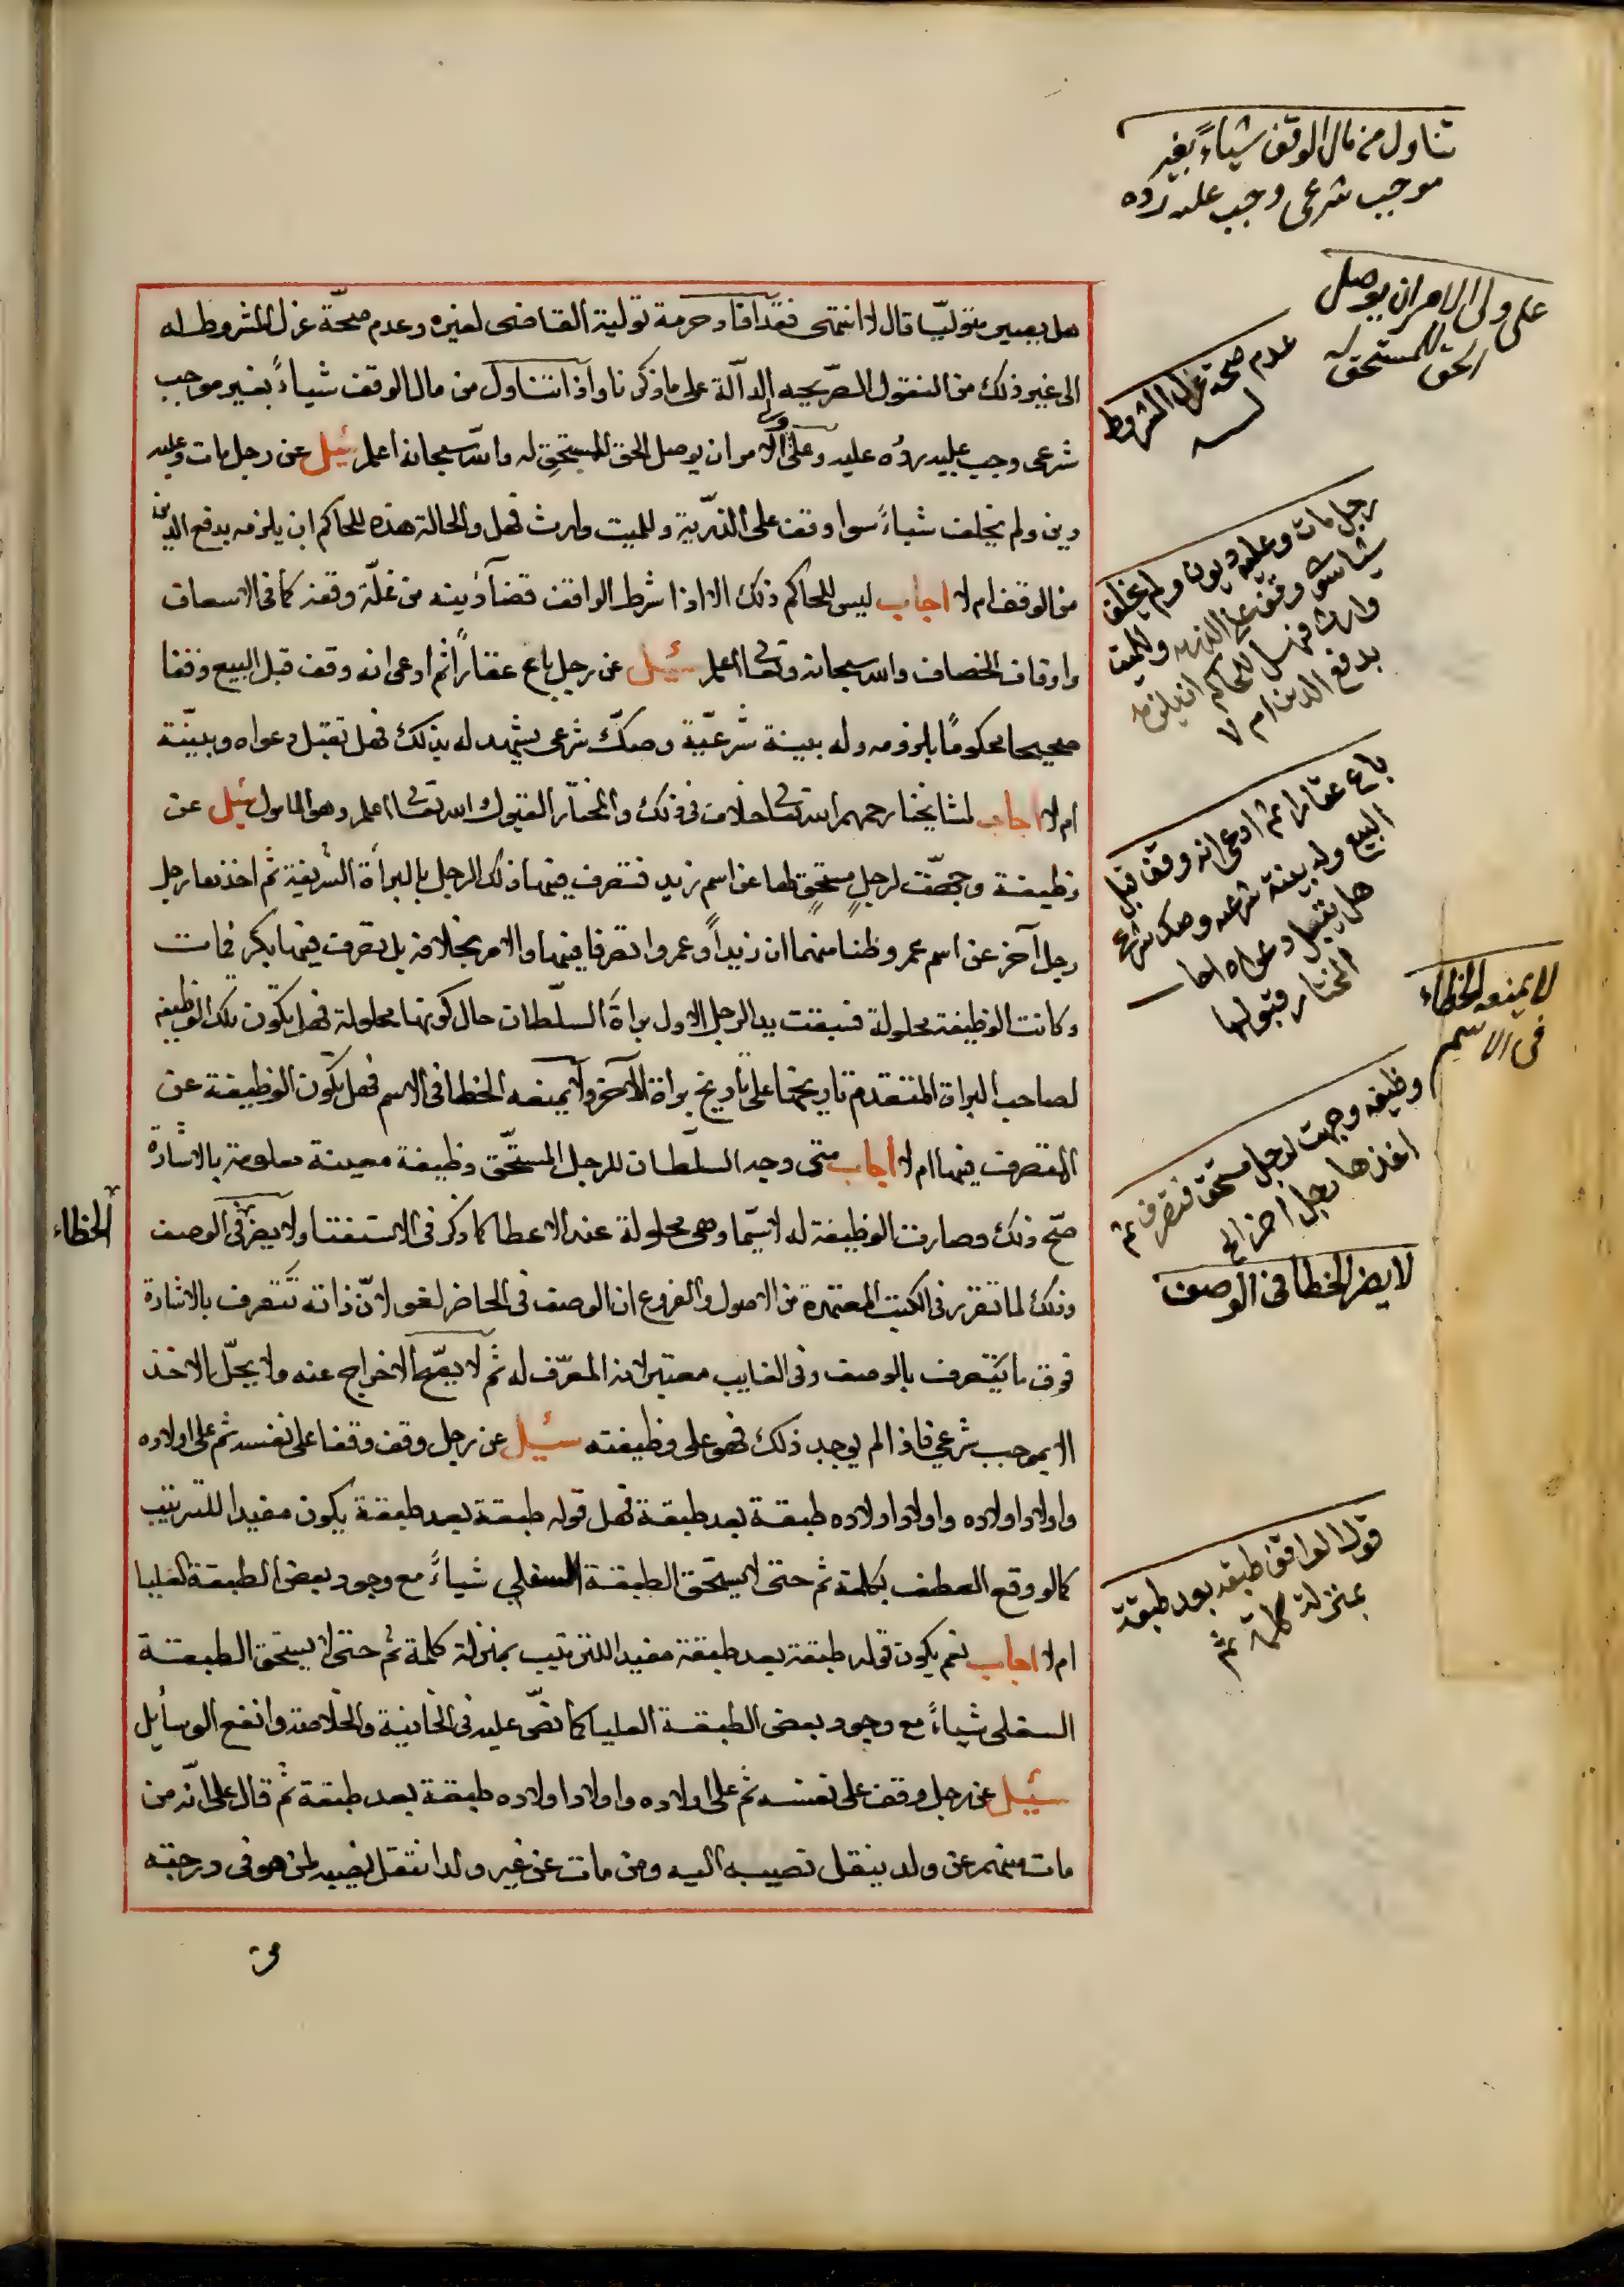 تناول من مال الوقف شياءً بغير
موجب شرعى وجب عليه رده
على ولى الامر ان يوصل
الحق للمستحق له
عدم صحة عزل المشروط
له
هل يصير متوليّا قال لا انتهى فقد افاد حرمة تولية القاضى لغيره وعدم صحّة عزل المشروط له
الى غير ذلك من النقول الصّريحه الدآلة على ما ذكرنا واذا تناول من مال الوقف شياءً بغير موجب
شرعى وجب عليه ردُه عليه وعلى ولى الامر ان يوصل الحق للمستحقِ له والله سبحانه اعلم سُيل عن رجل مات وعليه
دين ولم يخلف شياءً سوا وقف على الذرّية وللميت وارث فهل والحالة هذه للحاكم ان يلزمه بدفع الدين
من الوقف ام لا اجاب ليس للحاكم ذلك الا اذا شرط الواقف قضآ دينه من غلّة وقفه كما فى الاسعاف
واوقاف الخصاف والله سبحانه وتعالى اعلم سُيل عن رجل باع عقاراً ثم ادعى انه وقف قبل البيع وقفا
صحيحا محكومًا بلزومه وله بينة شرّعيّة وصكّ شرعى يشهد له بذلك فهل تقبل دعواه وبيّنة
ام لا اجاب لمشايخنا رحمهم الله تعالى اختلاف فى ذلك والمختار القبول والله تعالى اعلم وهو المامول سُيل عن
وظيفة وجهّت لرجلٍ مستحقٍ لها عن اسم زيد فتصرف فيها ذلك الرجل بالبرأة الشريفة ثم اخذها رجل
رجل آخر عن اسم عمر وظنا منهما ان زيداً وعمروا تصرفا فيها والامر بخلافه بل تصرف فيها بكر فمات
وكانت الوظيفة محلولة فسبقت بيد الرجل الاول براة السلّطان حال كونها محلولة فهل تكون تلك الوظيفه
لصاحب البراة المتقدم تاريخها على تاريخ براة الآخر ولا يمنعه الخطا فى الاسم فهل تكون الوظيفة عن
المتصرف فيها ام لا اجاب متى وجه السلّطان للرجل المستحّق وظيفة معينة معلومة بالاشارة
صّح ذلك وصارت الوظيفة له لا سيّما وهى محلولة عند الاعطا كما ذكر فى الاستفتا ولا يضر فى الوصف
الخطاء
وذلك لما تقرر فى الكتب المعتمدة من الاصول والفروع ان الوصف فى الحاضر لغو لانّ ذاته تتعرف بالاشارة
فوق ما يتعرف بالوصف وفى الغايب معتبر لانه المعرّف له ثم لا يصّح الاخراج عنه ولا يحلّ الاخذ
الا بموجب شرعي فاذا لم يوجد ذلك فهو على وظيفته سُيل عن رجل وقف وقفا على نفسه ثم على اولاده
واولاد اولاده واولاد اولاده طبقة بعد طبقة فهل قوله طبقة بعد طبقة يكون مفيدا للترتيب
كما لو وقع العطف بكلمة ثم حتى لا يستحق الطبقة السفلى شياءً مع وجود بعض الطبقة العليا
ام لا اجاب نعم يكون قوله طبقة بعد طبقة مفيدا للترتيب بمنزلة كلمة ثم حتى لا يستحق الطبقة
السفلى شياءً مع وجود بعض الطبقة العليا كما نصّ عليه فى الخانية والخلاصة وانفع الوسأيل
سُيل عن رجل وقف على نفسه ثم على اولاده واولاد اولاده طبقة بعد طبقة ثم قال على انّه من
مات منهم عن ولد ينقل نصيبه اليه ومن مات عن غير ولد انتقل نصيبه لمن هو فى درجته
رجل مات وعليه ديون ولم يخلف
شيا سوى وقف على الذريه وللميت
وارث فهل للحاكم ان يلزمه
بدفع الدين ام لا
باع عقارا ثم ادعى انه وقف قبل
البيع وله بينة شرعيه وصك شرعى
هل يقبل دعواه اجاب
المختار قبولها
لا يمنعه الخطاء
فى الاسم
وظيفه وجهت لرجل مستحق فتصرف ثم
اخذها رجل اخر الخ
لا يضر الخطا فى الوصف
قول الواقف طبقه بعد طبقة
بمنزلة كلمة ثم